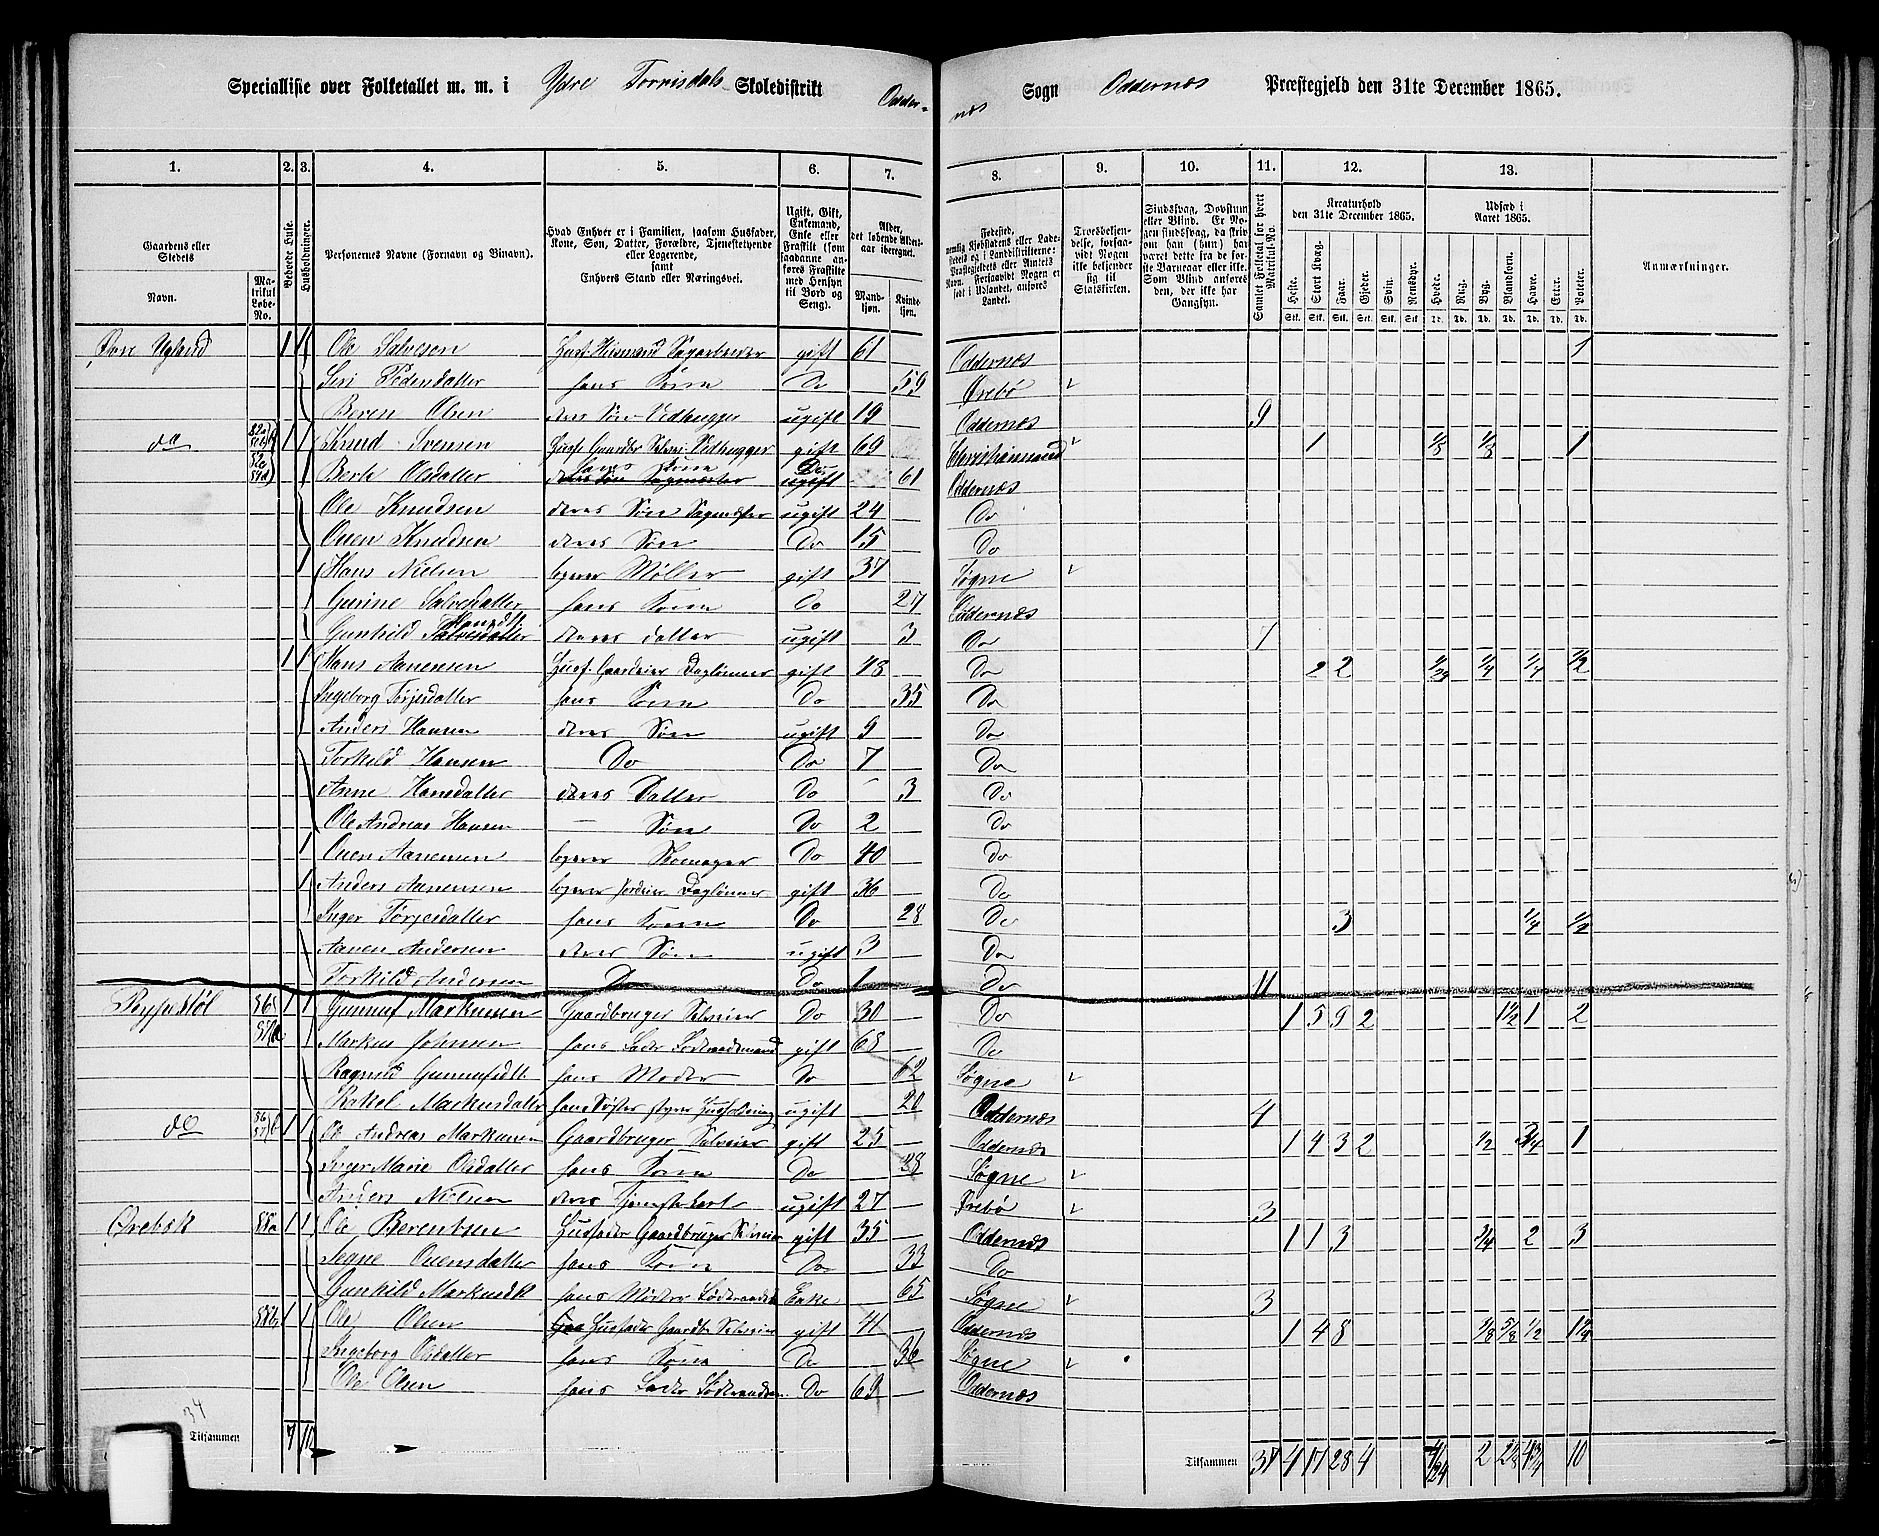 Specialliste over Folketallet m. m. i Ydre Torrisdals Skoledistrikt Odder-
nes Sogn Oddernæs Præstegjeld den 31te December 1865.
1. 2. 3. 4. 5. 6. 7. 8. 9. 10. 11. 12. 13.
Gaardens eller Stedets
Navn.
Matrikul Løbe-No.
Beboede Huse.
Husholdninger.
Personernes Navne (Fornavn og Binavn).
Hvad Enhver er i Familien, saasom Husfader, Kone, Søn, Datter, Forældre, Tjenestetyende eller Logerende, samt Enhvers Stand eller Næringsvei.
Ugift, Gift, Enkemand, Enke eller Fraskilte (som saadanne anføres Fraskilte med Hensyn til Bord og Seng).
Alder, det løbende Aldersaar iberegnet.
Mandkjøn. Kvindekjøn.
Troesbekjendelse, forsaavidt Nogen ikke bekjender sig til Statskirken.
Samlet Folketal for hvert Matrikul-No.
Kreaturhold den 31te December 1865.
Heste. Stort Kvæg. Faar. Gjeder. Svin. Rensdyr.
Udsæd i Aaret 1865.
Hvede. Rug. Byg. Blandkorn. Havre. Erter. Poteter.
Anmærkninger.
Øvre Ugland 1 1 Ole Salvesen Husf. Huusmand Sagarbeider gift 61 Oddernæs 1
Siri Pedersdatter hans Kone Do 59 Øvrebø
Beren Olsen deres Søn Vedhugger ugift 19 Oddernæs 9
do 1 1 Knud Svensen Husf. Gaardbr Selvei. Vedhugger gift 69 Christianssand 1 1/8 1/8 1
Berte Olsdatter hans Kone Do 61 Oddernæs
Ole Knudsen deres Søn Sagmester ugift 24 Do
Ouen Knudsen deres Søn Do 15 Do
1 Hans Nielsen logerer Møller gift 37 Søgne
Gurine Salvesdatter hans Kone Do 27 Oddernæs
Gunhild Hansdt deres datter ugift 3 Do 7
1 1 Hans Aanensen Husf. Gaardeier Daglønner gift 43 Do 2 2 1/24 1/4 1/4 1/2
Ingeborg Tørjesdatter hans Kone Do 35 Do
Anders Hansen deres Søn ugift 9 Do
Torkild Hansen Do Do 7 Do
Anne Hansdatter deres Datter Do 3 Do
Ole Andreas Hansen — Søn Do 2 Do
1 Ouen Aanensen logerer Skomager Do 40 Do
1 Anders Aanensen logerer Jordeier Daglønner gift 36 Do
Inger Tørjesdatter hans Kone Do 28 Do 3 1/4 1/2
Aanen Andersen deres Søn ugift 3 Do
Torkild Andersen Do Do 1 Do 11
Rypestøl 1 1 Gunnuf Markussen Gaardbruger Selveier Do 30 Do 1 5 9 2 1 1/2 1 2
Markus Johnsen hans Fader Føderaadsmand gift 68 Do
Ragnild Gunnufsdt hans Moder Do 62 Søgne
Rakel Markusdatter hans Søster styrer Husholdning ugift 20 Oddernæs 4
do 1 1 Ole Andreas Markussen Gaardbruger Selveier gift 25 Oddernæs 1 4 3 2 1/2 3/4 1
Inger Marie Olsdatter hans Kone Do 28 Søgne
Anders Nielsen deres Tjenestekarl ugift 27 Øvrebø 3
Ørebæk 58a 1 1 Ole Berentsen Husfader Gaardbruger Selveier gift 35 Oddernæs 1 1 3 3/4 2 3
Signe Ouensdatter hans Kone Do 33 Do
Gunhild Markusdt hans Moder Føderaads Enke 65 Søgne 3
58b 1 1 Ole Olsen Husfader Gaardbr Selveier gift 41 Oddernæs 1 4 8 5/8 1/2
Ingeborg Olsdatter hans Kone Do 36 Søgne
Ole Olsen hans Fader Føderaadsm. Do 69 Oddernæs
34
Tilsammen 7 10 Tilsammen 37 4 17 28 4 2 10